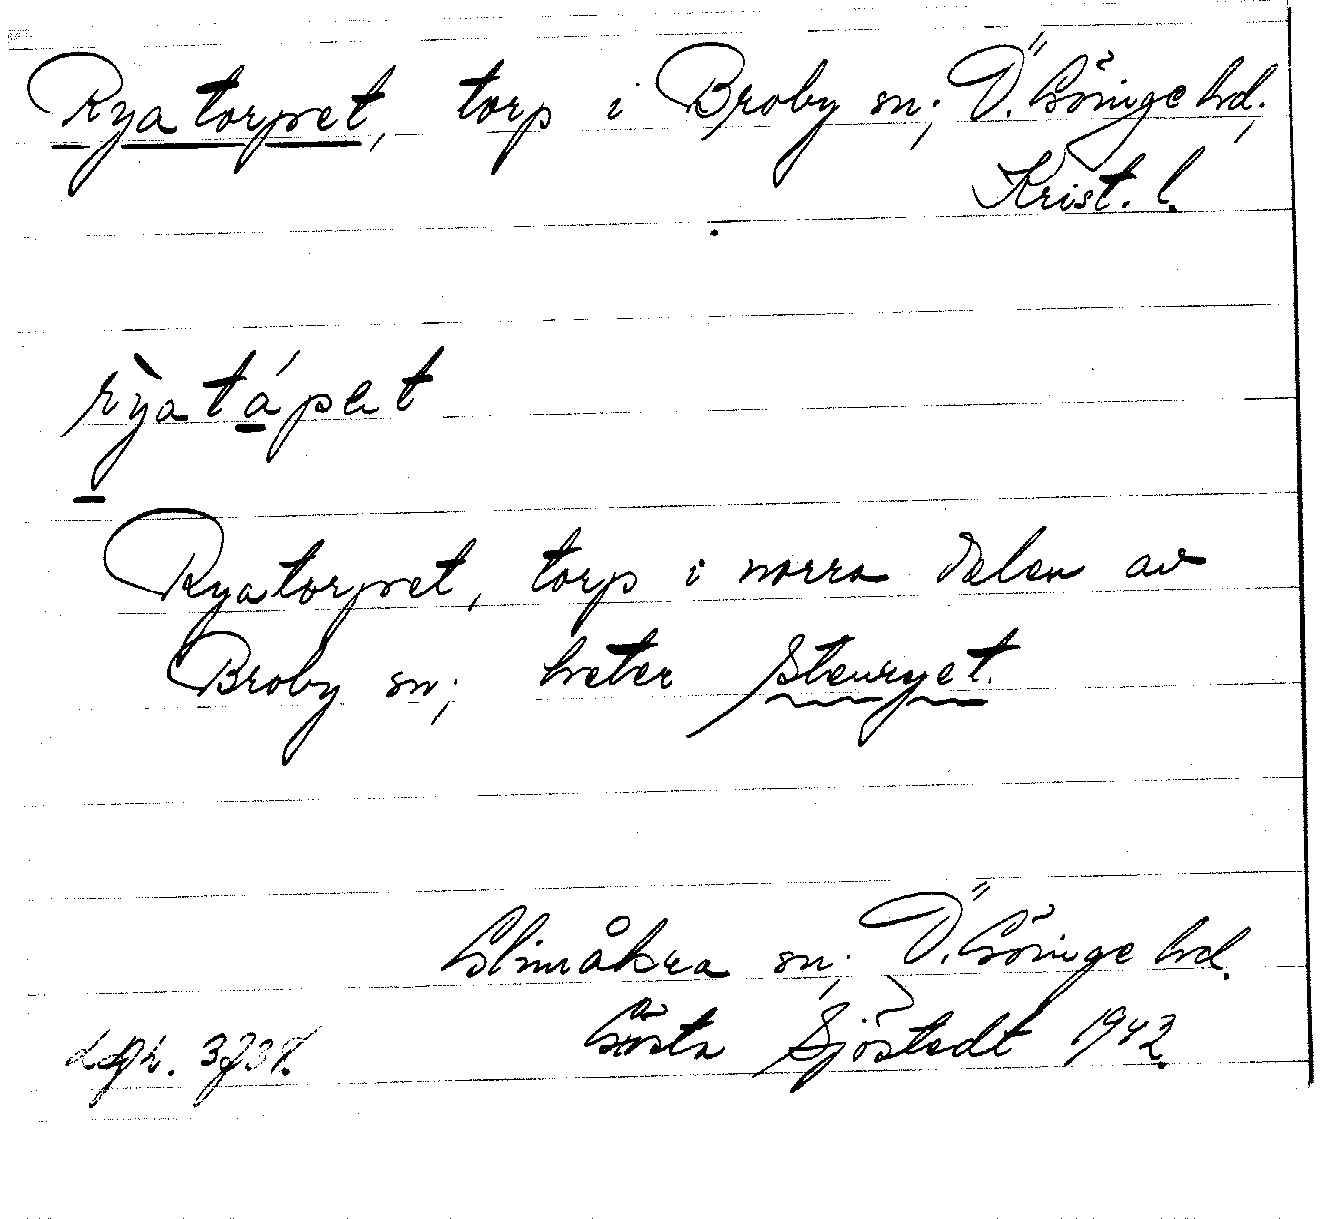 Ryatorpet, torp i Broby sn, Ö. Göinge hd,
Krist. l.
rỳatápat
Ryatorpet, torp i norra delen av
Broby sn; heter Stenryet.
Glimåkra sn, Ö. Göinge hd.
Gösta Sjöstedt 1943.